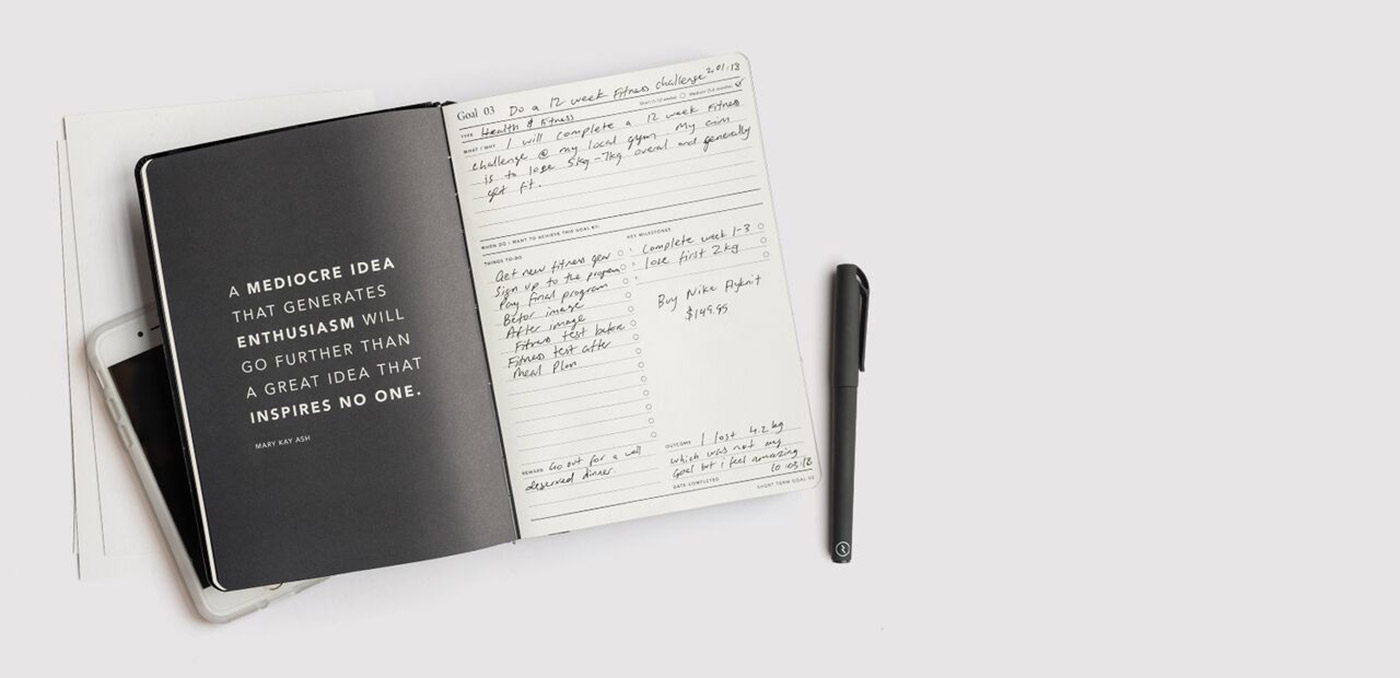 A MEDIOCRE IDEA
THAT GENERATES
ENTHUSIASM WILL
GO FURTHER THAN
A GREAT IDEA THAT
INSPIRES NO ONE.
MARY KAY ASH
Goal 03 Do a 12 week Fitness challenge 2.01.18
TYPE Health & Fitness Short (1-12 weeks) Medium (3-6 months)
WHAT / WHY I will complete a 12 week Fitness
challenge @ my local gym. My aim
is to lose 5kg-7kg overal and generally
get fit.
WHEN DO I WANT TO ACHIEVE THIS GOAL BY:
THINGS TO-DO
Get new fitness gear
Sign up to the program
Pay final program
Befor image
After image
Fitness test before
Fitness test after
Meal Plan
REWARD Go out for a well
deserved dinner.
KEY MILESTONES
Complete week 1-3
lose first 2kg
Buy Nike Flyknit
$149.95
OUTCOME I lost 4.2kg
which was not my
goal but i feel amazing
DATE COMPLETED 10.03.18
SHORT TERM GOAL 03